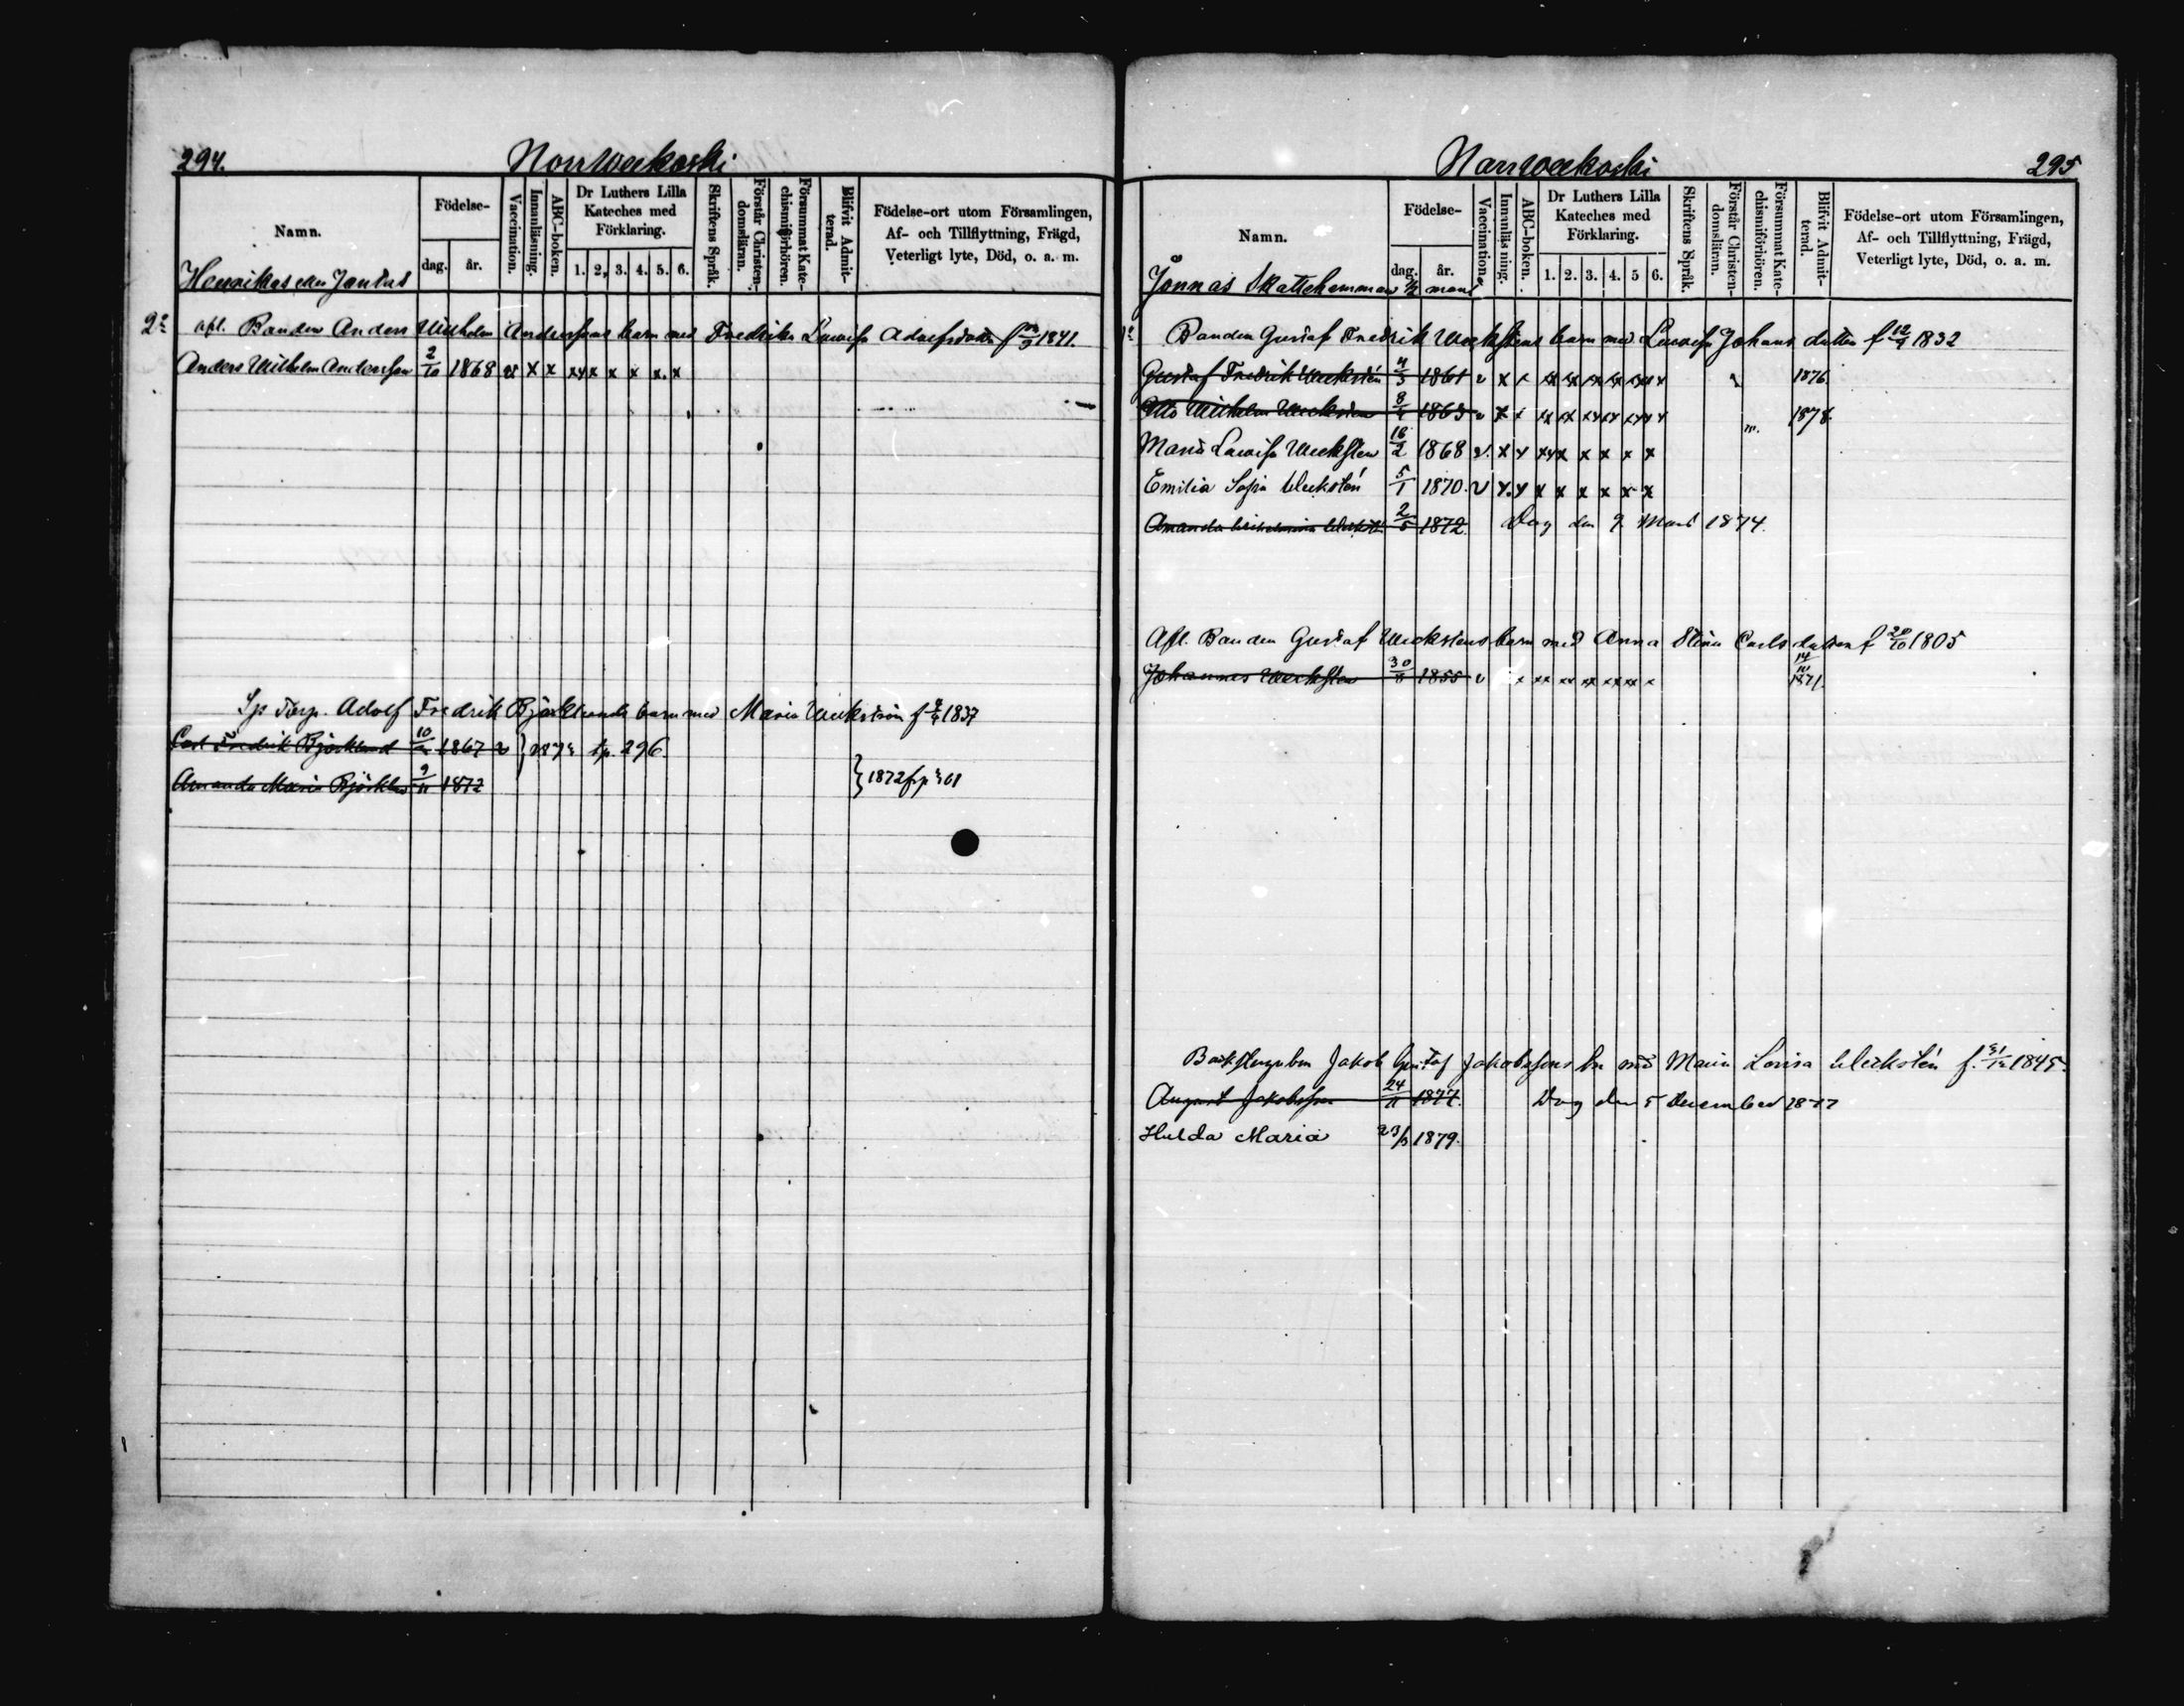 294.
Norrweckoski
Namn.
Födelse-
dag. år.
Vaccination.
Innanläsning.
ABC-boken.
Dr Luthers Lilla Kateches med Förklaring.
1. 2, 3. 4. 5. 6.
Skriftens Språk.
Förstår Christendomsläran.
Försummat Katechismiförhören.
Blifvit Admitterad.
Födelse-ort utom Församlingen, Af- och Tillflyttning, Frägd, Veterligt lyte, Död, o. a. m.
Henrikas eller Jantas
afl. Bonden Anders Wilhelm Anderssons barn med Fredrika Lovisa Adolfsdotter f 1841
Anders Wilhelm Andersson 2/10 1868 v x x xxx x x x. x
Adolf Fredrik Björklunds barn med Maria Weckström f 1837
Carl Fredrik Björklund 10 1867 v 296.
Amanda Maria Björklund 9/11 1872 } 1872
Norrweckoski
295
Namn.
Födelse-
dag. år.
Vaccination.
Innanläsning.
ABC-boken.
Dr Luthers Lilla Kateches med Förklaring.
1. 2. 3. 4. 5 6.
Skriftens Språk.
Förstår Christendomsläran.
Försummat Katechismiförhören.
Blifvit Admitterad.
Födelse-ort utom Församlingen, Af- och Tillflyttning, Frägd, Veterligt lyte, Död, o. a. m.
Jonnas Skattehemman 1/2 mant
Bonden Gustaf Fredrik Wecksténs barn med Lovisa Johans dotter f 12/9 1832
Gustaf Fredrik Weckstén 4/3 1861 v x x xx xx xx xx xx xx 1876.
Otto Wilhelm Weckstén 8/4 1863 v x x xx xx xx xx xx x 1878
Maria Lovisa Weckstén 16/2 1868 v. x x xxx x x x x
Emilia Sofia Weckstén 5/1 1870. v x. x x x x x x x
Amanda Wilhelmina Weckstén 1872 Dog den 9 Mars 1874.
Afl. Bonden Gustaf Wecksténs barn med Anna Stina Carls dotter f 20/10 1805
Johannes Weckstén 30/8 1855 v x xx xx xx xx xx x 1871.
Jakob Gustaf Jakobssons bn med Maria Lovisa Weckstén f. 31/12 1845.
August Jakobsson 24/11 1877. Dog den 5 december 1877
Hulda Maria 23/3 1879.